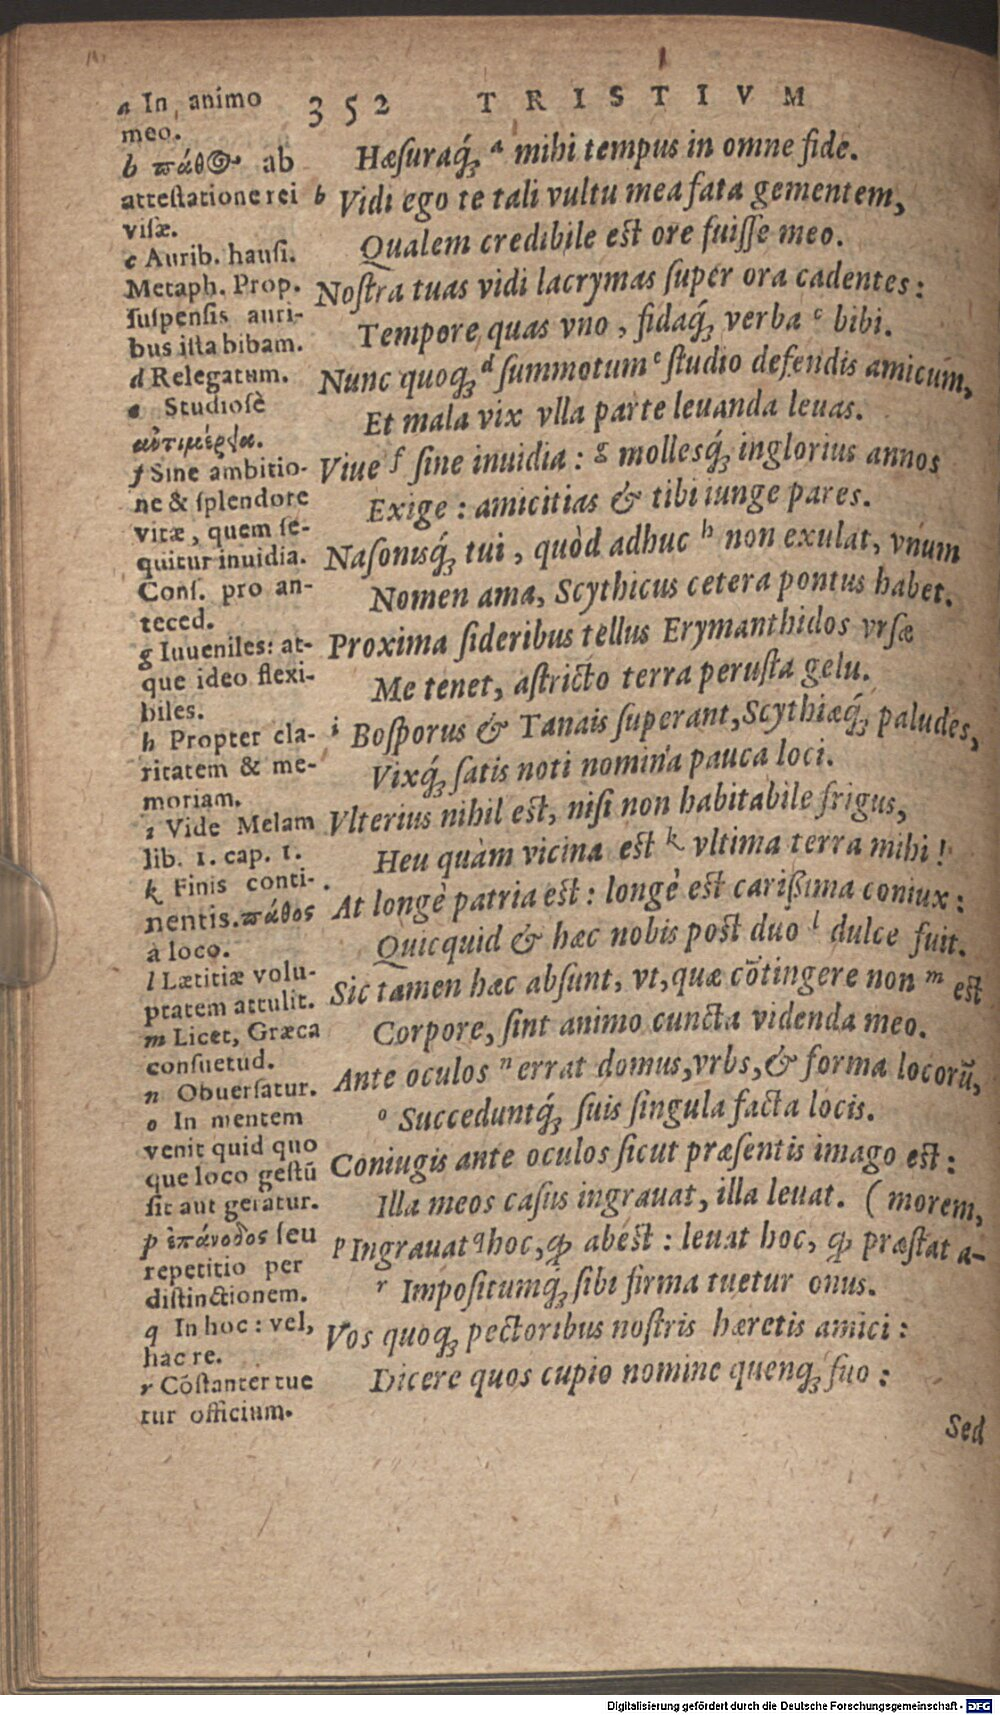 352 TRISTIVM
a In animo
meo.
b πάθος ab
attestatione rei
visæ.
c Aurib. hausi.
Metaph. Prop.
suspensis auri-
bus ista bibam.
d Relegatum.
e Studiosè
f Sine ambitio-
ne & splendore
vitæ, quem se-
quitur inuidia.
Cons. pro an-
teced.
g Iuueniles: at-
que ideo flexi-
biles.
h Propter cla-
ritatem & me-
moriam.
i Vide Melam
lib. 1. cap. 1.
k Finis conti-
nentis. πάθος
a loco.
l Lætitiæ volu-
ptatem attulit.
m Licet, Græca
consuetud.
n Obuersatur.
o In mentem
venit quid quo
que loco gestū
sit aut geratur.
p ἐπάνοδος seu
repetitio per
distinctionem.
q In hoc: vel,
hac re.
r Cōstanter tue
tur officium.
Hæsuraq́; a mihi tempus in omne fide.
b Vidi ego te tali vultu mea fata gementem,
Qualem credibile est ore fuisse meo.
Nostra tuas vidi lacrymas super ora cadentes:
Tempore quas vno, fidaq́; verba c bibi.
Nunc quoq; d summotum e studio defendis amicum,
Et mala vix vlla parte leuanda leuas.
Viue f sine inuidia: g mollesq́; inglorius annos
Exige: amicitias & tibi iunge pares.
Nasonisq́; tui, quòd adhuc h non exulat, vnum
Nomen ama, Scythicus cetera pontus habet.
Proxima sideribus tellus Erymanthidos vrsæ
Me tenet, astricto terra perusta gelu.
i Bosporus & Tanais superant, Scythiæq́; paludes,
Vixq́; satis noti nomina pauca loci.
Vlterius nihil est, nisi non habitabile frigus,
Heu quàm vicina est k vltima terra mihi!
At longè patria est: longè est carißima coniux:
Quicquid & hæc nobis post duo l dulce fuit.
Sic tamen hæc absunt, vt, quæ cōtingere non m est
Corpore, sint animo cuncta videnda meo.
Ante oculos n errat domus, vrbs, & forma locorū,
o Succeduntq́; suis singula facta locis.
Coniugis ante oculos sicut præsentis imago est:
Illa meos casus ingrauat, illa leuat. (morem,
p Ingrauat q hoc, ꝙ abest: leuat hoc, ꝙ præstat a-
r Impositumq́; sibi firma tuetur onus.
Vos quoq; pectoribus nostris hæretis amici:
Dicere quos cupio nomine quenq; suo:
Sed
Digitalisierung gefördert durch die Deutsche Forschungsgemeinschaft - DFG